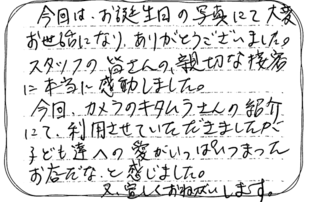 今回は、お誕生日の写真にて大変
お世話になり、ありがとうございました。
スタッフの皆さんの、親切な接客
に本当に感動しました。
今回、カメラのキタムラさんの紹介
にて、利用させていただきましたが、
子ども達への愛がいっぱいつまった
お店だな、と感じました。
又、宜しくおねがいします。